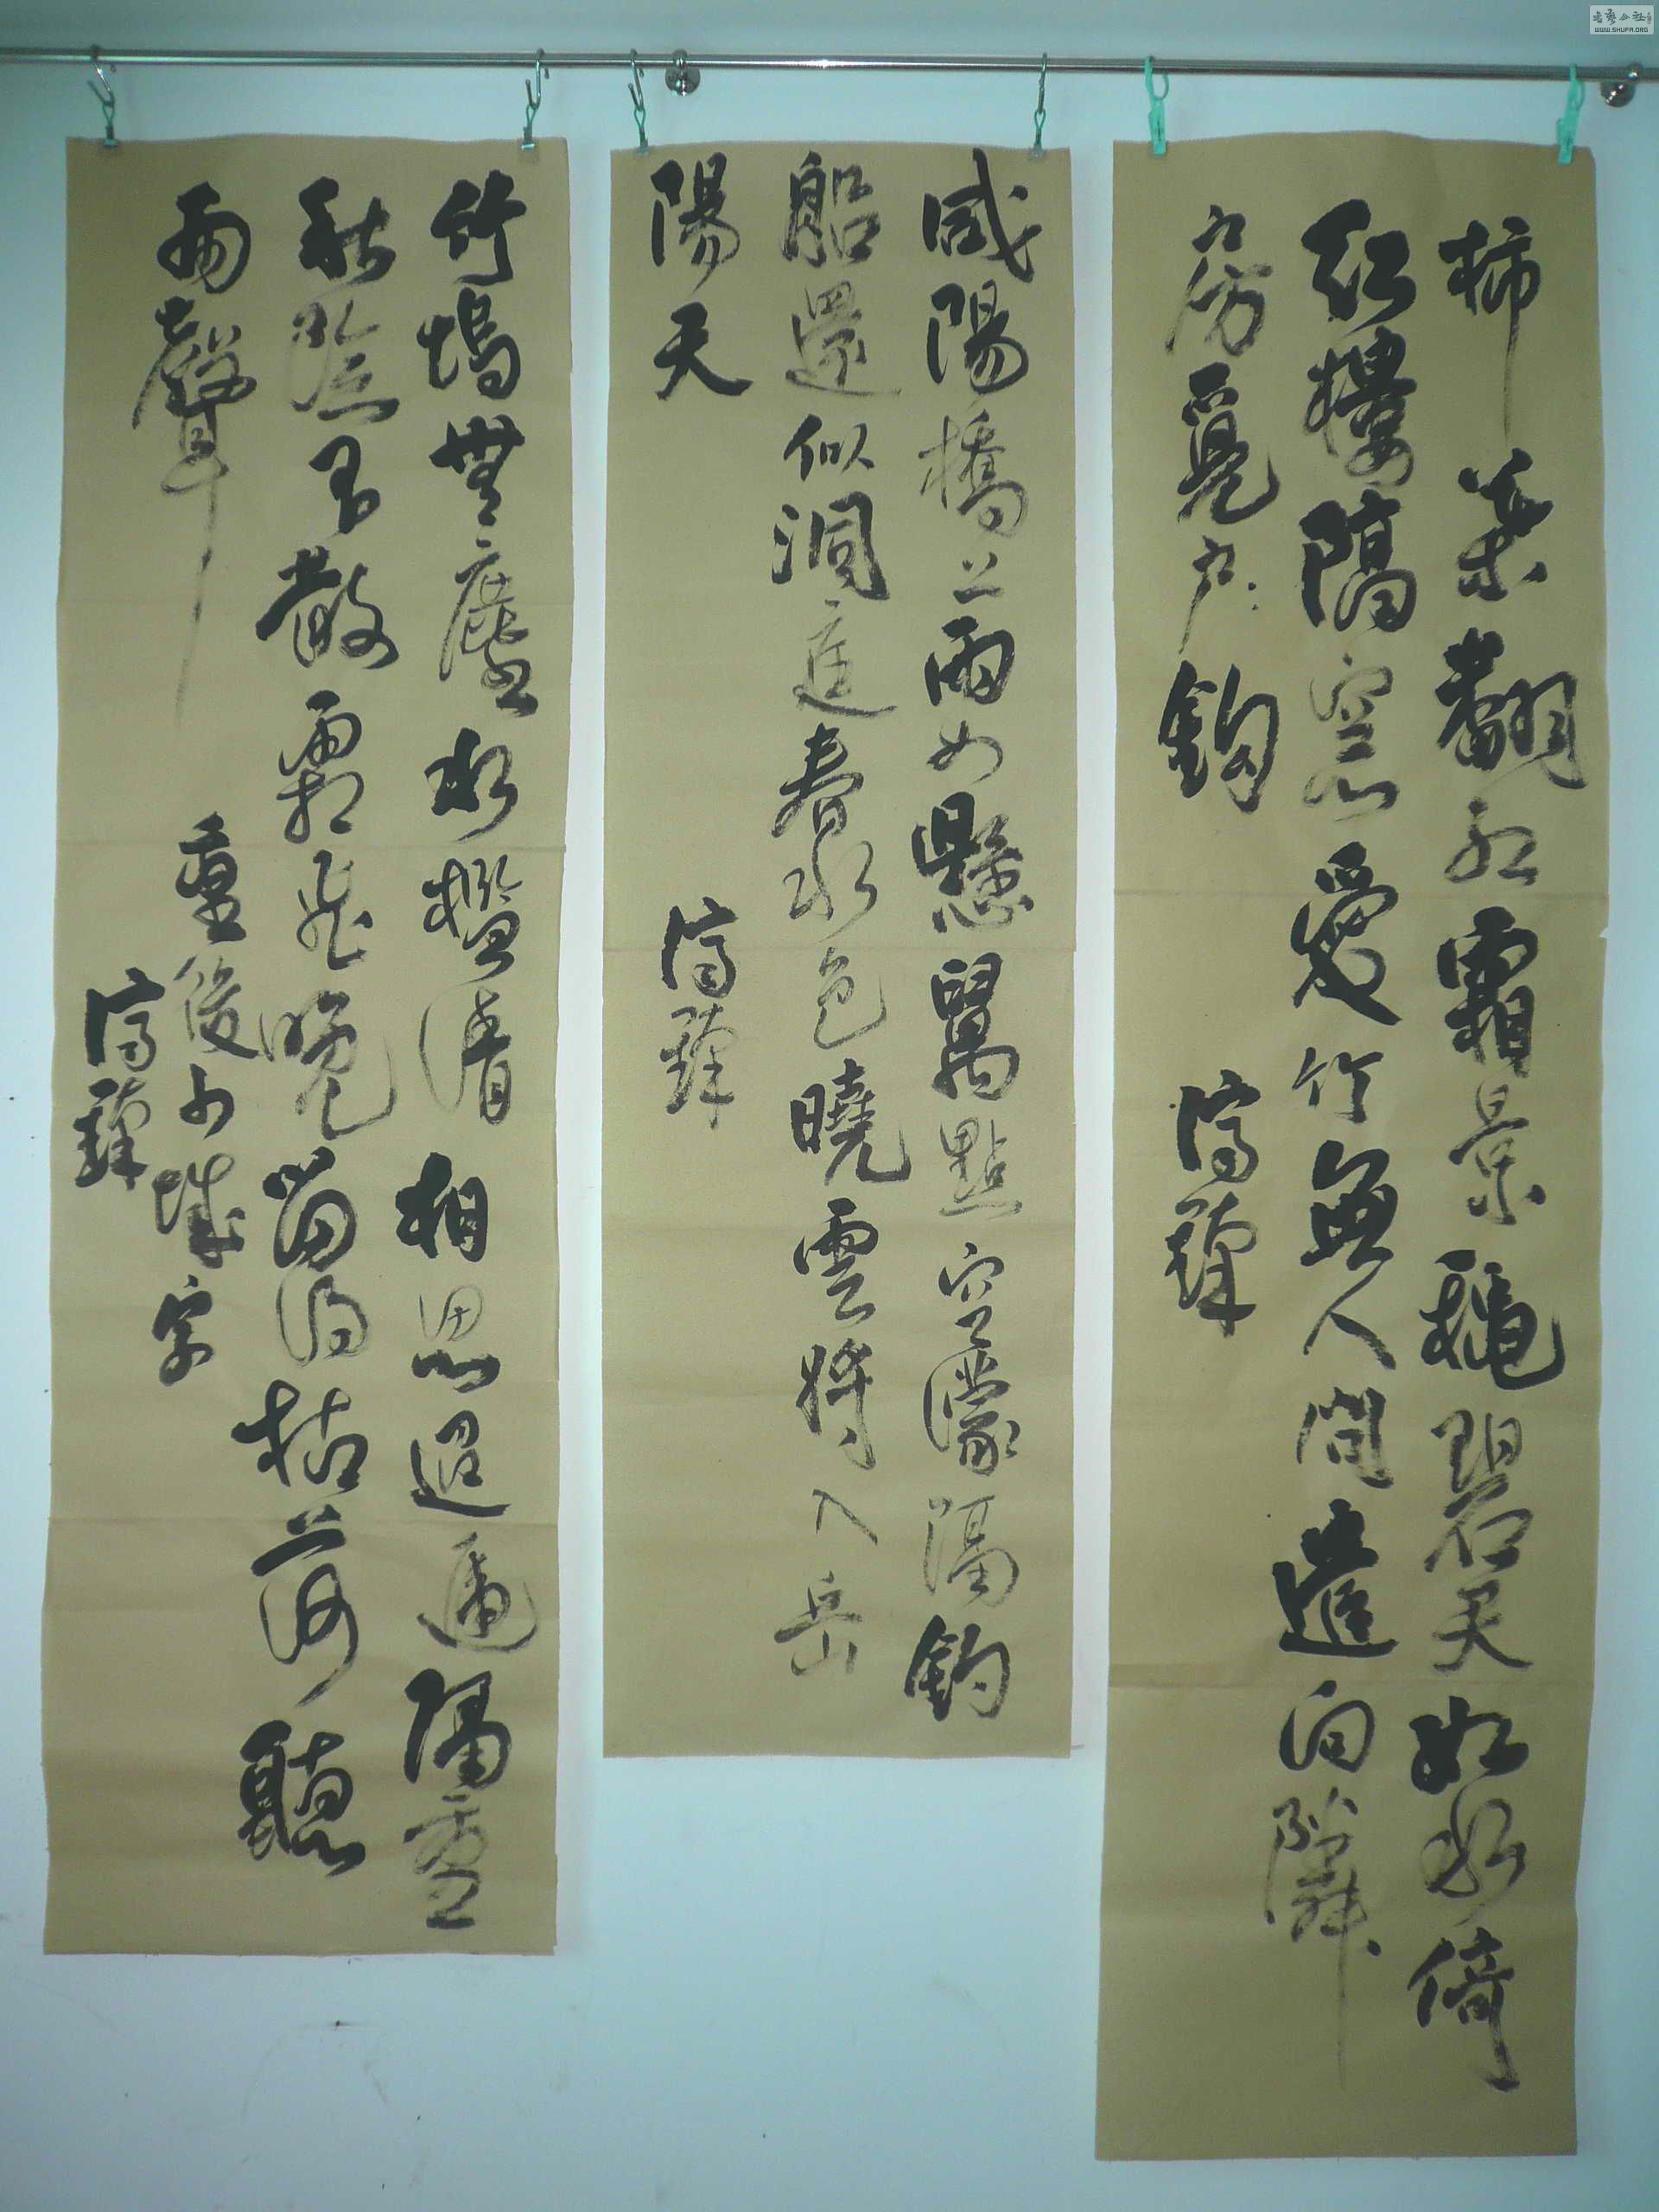 柿葉翻紅霜景穐碧天如水倚
紅樓隔窓愛竹無人問遣向隣
房覓戶鈎
咸陽橋上雨如懸萬點空濛隔釣
船還似洞庭春水色曉雲將入岳
陽天
竹塢無塵水檻清相思迢遞隔重
秋陰不散霜飛晚留得枯荷聽
雨聲
重後少城字
WWW.SHUFA.ORG